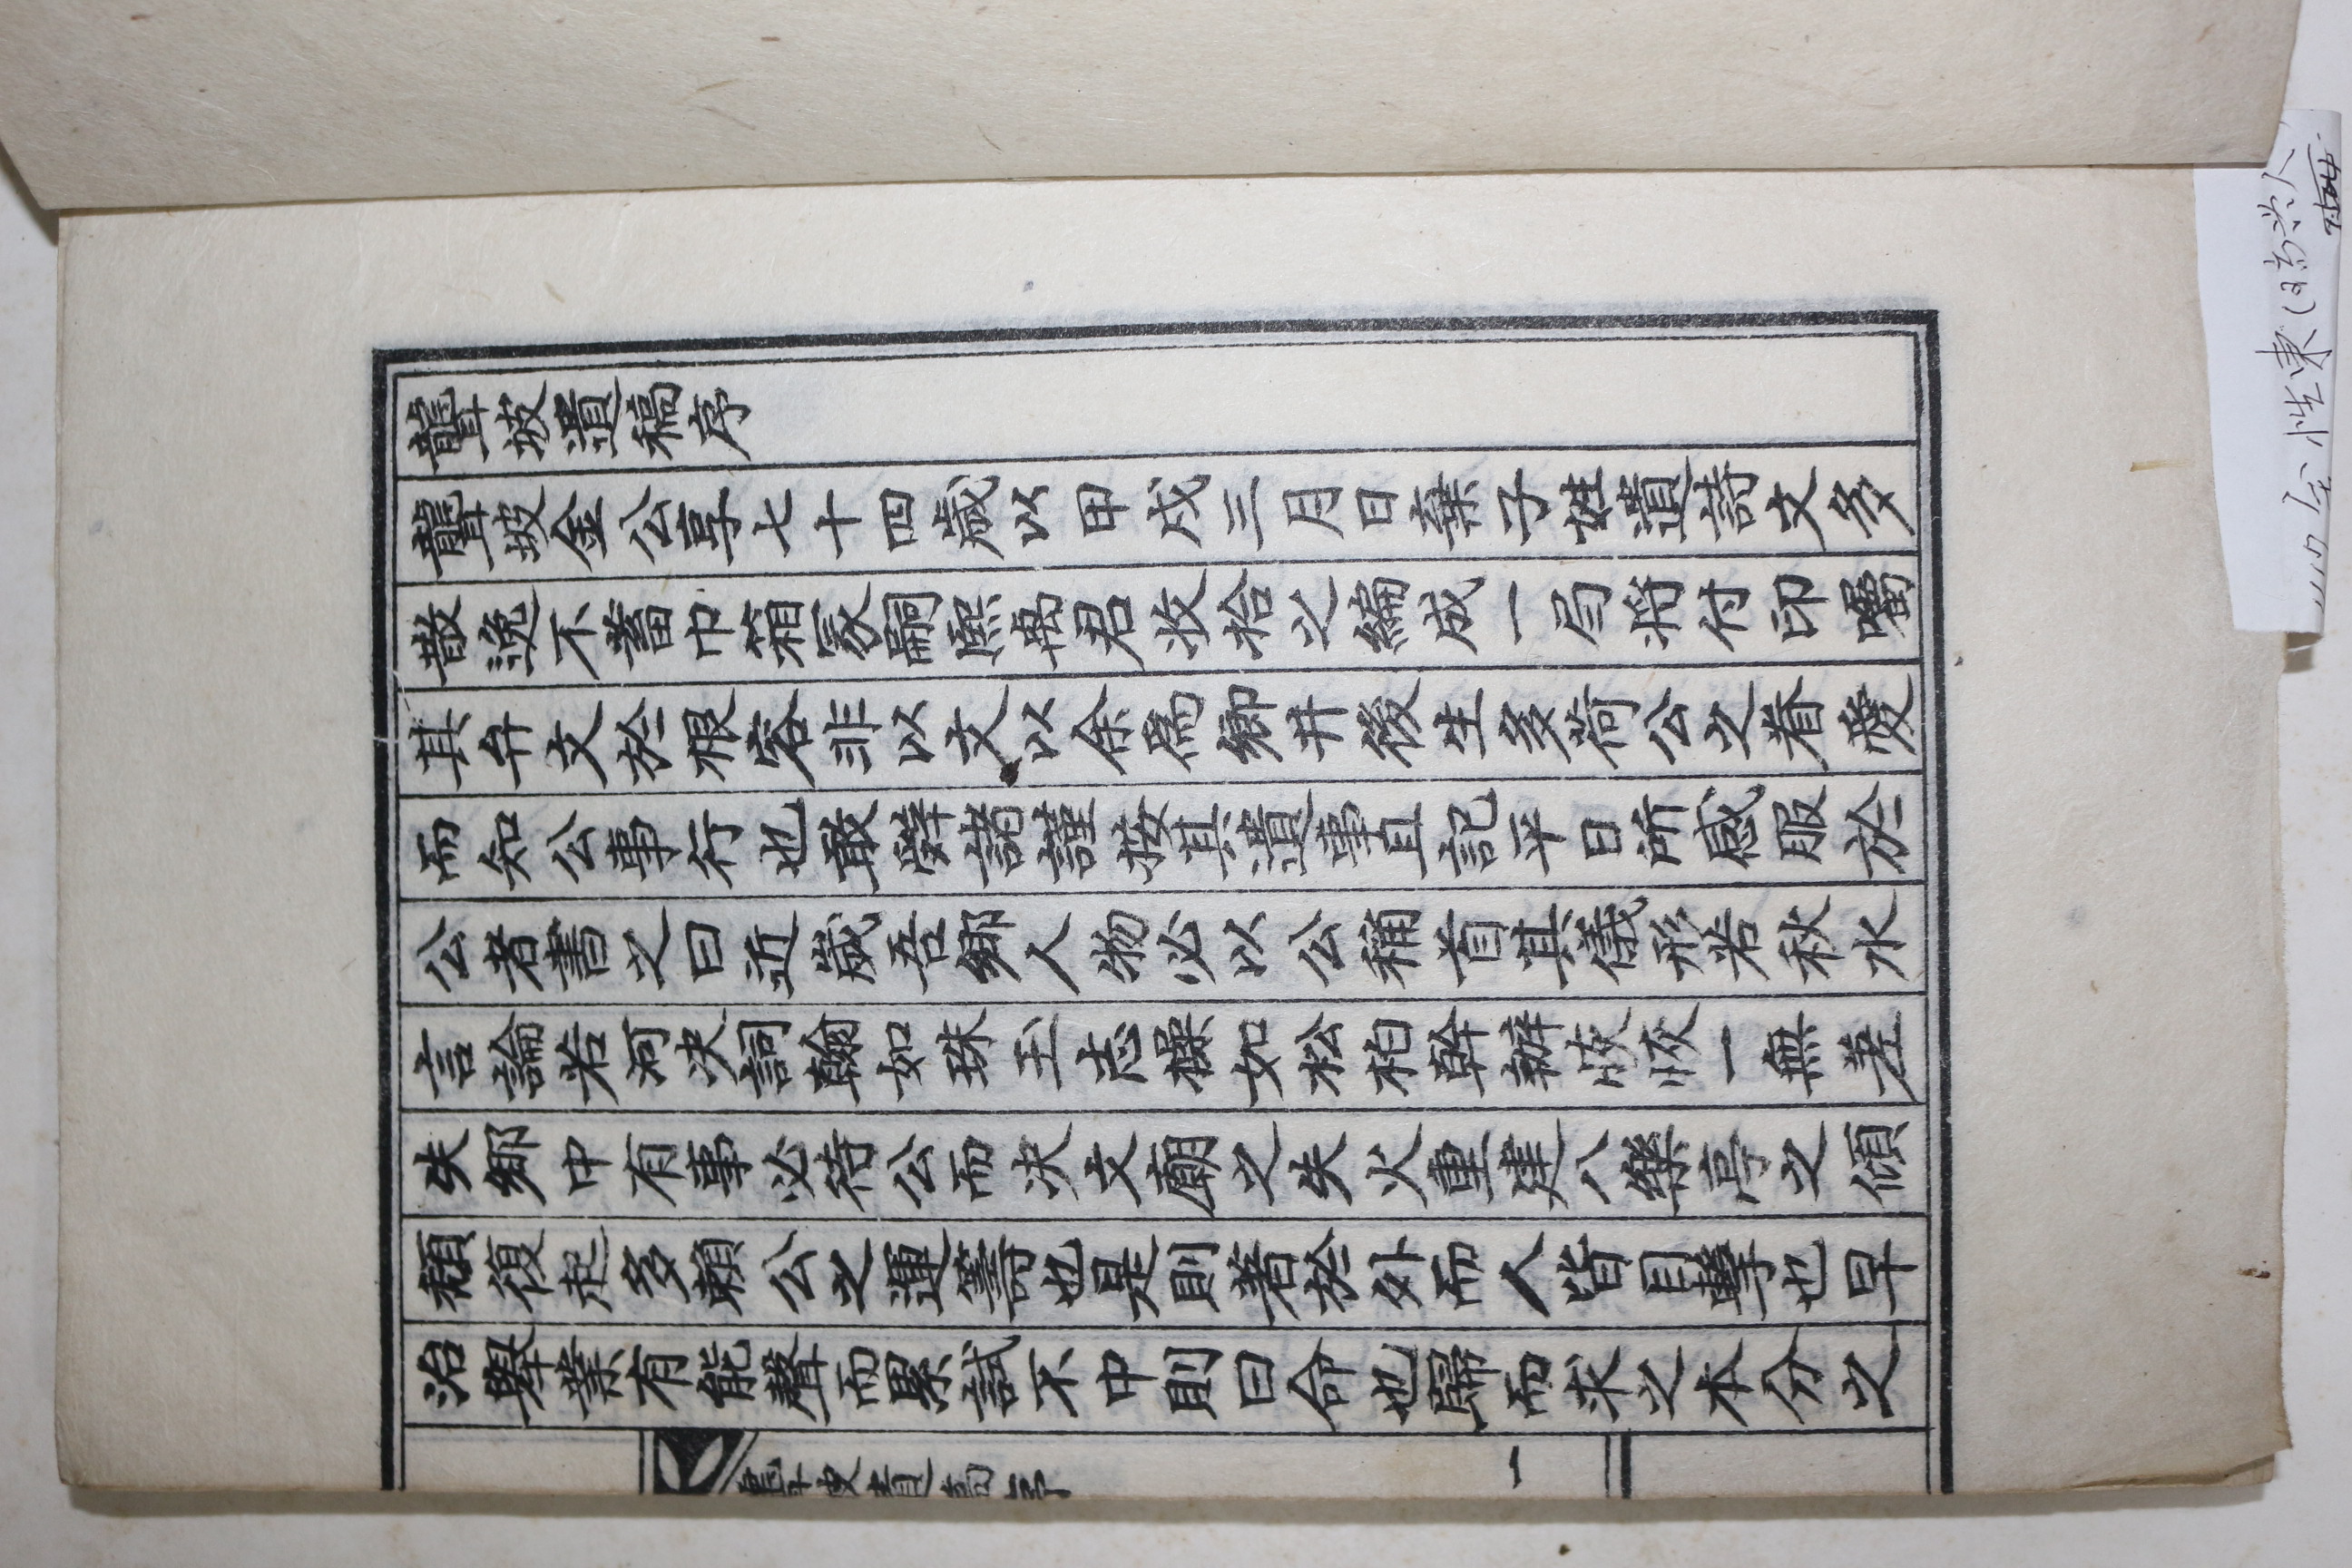 聾坡遺稿序
聾坡金公享七十四歲以甲戌三月日棄子姓遺詩文多
散逸不蓄巾箱家嗣熙 君收拾之編成一弓將付印囑
其弁文於根客非以文以余爲鄉井後生多荷公之眷愛
而知公事行也敢辭諸謹按其遺事且記平日所感服於
公者書之曰近歲吾鄉人物必以公稱首其儀形若秋水
言論若河決詞翰如珠玉志操如松柏幹辦恢恢一無差
失鄉中有事必待公而決文廟之失火重建八樂亭之傾
頹復起多賴公之運籌也是則著於外而人皆目擊也早
治擧業有能聲而累試不中則曰命也歸而求之本分之
聾坡遺稿序 一